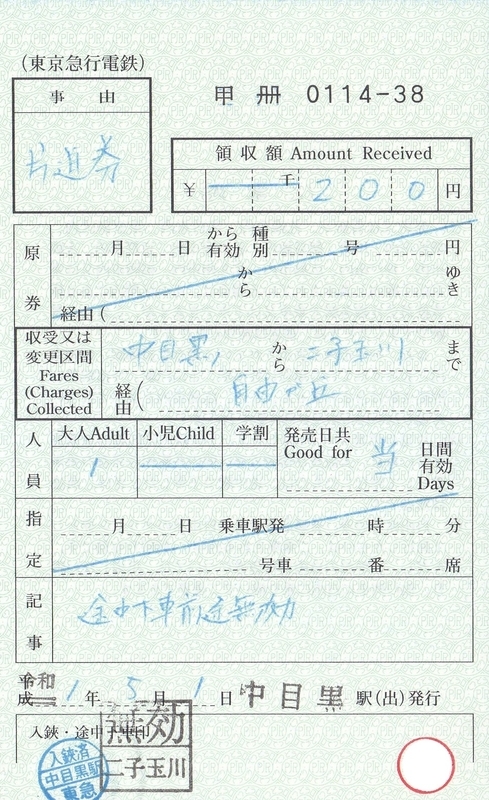 (東京急行電鉄)
事由
甲 冊 0114-38
片道券
領収額 Amount Received
¥ 千 200 円
原券
月 日 から有効 種別 号 円
から ゆき
経由(
収受又は変更区間 Fares (Charges) Collected
中目黒 から 二子玉川 まで
経由( 自由が丘
人員
大人Adult 小児Child 学割 発売日共 Good for 当 日間有効 Days
1
指定
月 日 乗車駅発 時 分
号車 番 席
記事
途中下車前途無効
令和 1年 5月 1日 中目黒 駅(出)発行
入鋏・途中下車印
無効
二子玉川
入鋏済
中目黒駅
東急